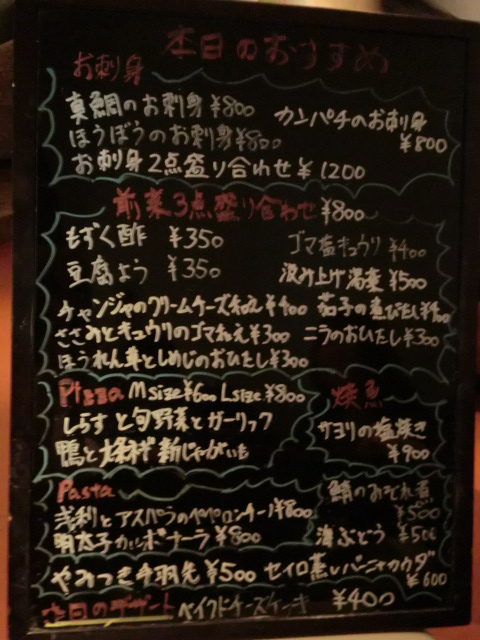 本日のおすすめ
お刺身
真鯛のお刺身 ¥800
カンパチのお刺身 ¥800
ほうぼうのお刺身 ¥800
お刺身2点盛り合わせ ¥1200
前菜3点盛り合わせ ¥800
もずく酢 ¥350
ゴマ塩キュウリ ¥400
豆腐よう ¥350
汲み上げ湯葉 ¥500
チャンジャのクリームチーズ和え ¥400
茄子の煮びたし
ささみとキュウリのゴマ和え ¥300
ニラのおひたし ¥300
ほうれん草としめじのおひたし ¥300
Pizza Msize ¥600 Lsize ¥800
しらすと旬野菜とガーリック
鴨と 新じゃがいも
焼魚
サヨリの塩焼き
¥900
Pasta
浅利とアスパラのペペロンチーノ ¥800
明太子カルボナーラ ¥800
鯖のみぞれ煮
¥500
海ぶどう ¥500
やみつき手羽先 ¥500
セイロ蒸しバーニャカウダ
¥600
本日のデザート ベイクドチーズケーキ ¥400